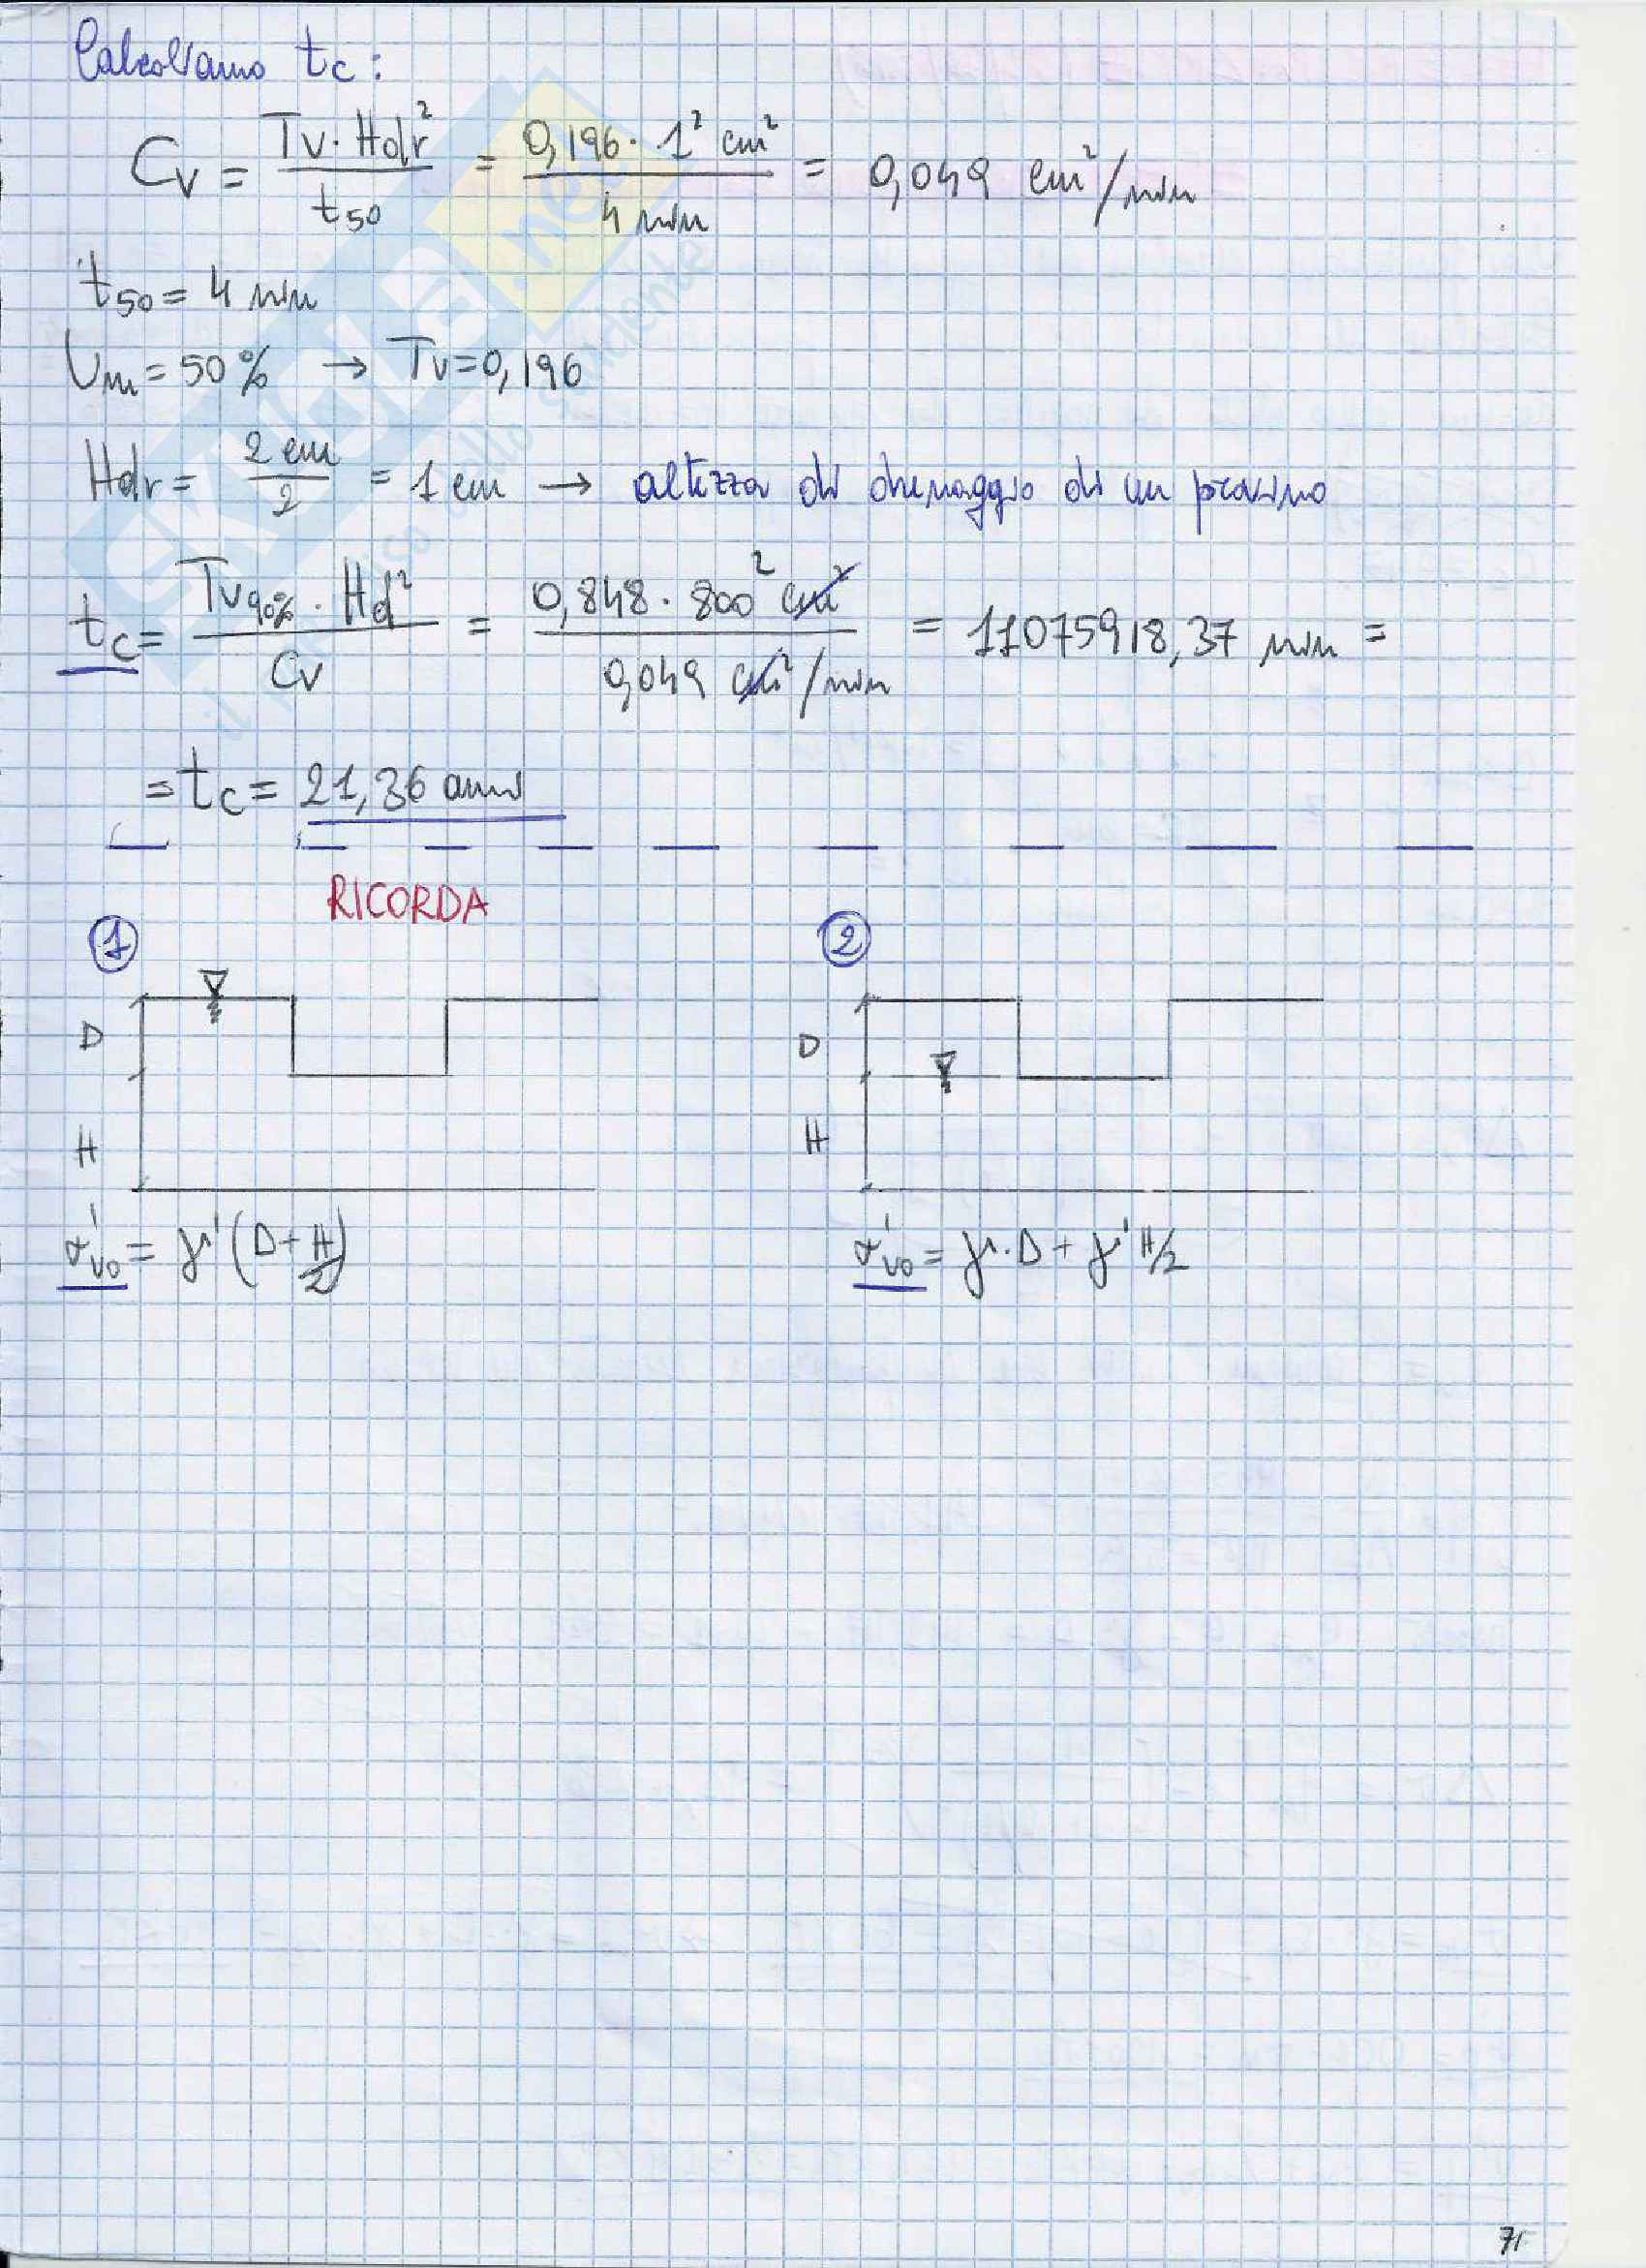 Calcoliamo tc:
Cv = Tv · Hdr² / t50 = 0,196 · 1² cm² / 4 min = 0,049 cm²/min
t50 = 4 min
Um = 50% → Tv = 0,196
Hdr = 2 cm / 2 = 1 cm → altezza di drenaggio di un provino
tc = Tv90% · Hd² / Cv = 0,848 · 800² cm² / 0,049 cm²/min = 11075918,37 min =
= tc = 21,36 anni
RICORDA
1 2
D D
H H
σ'v0 = γ' (D + H/2) σ'v0 = γ · D + γ' H/2
71
SKUOLA.net